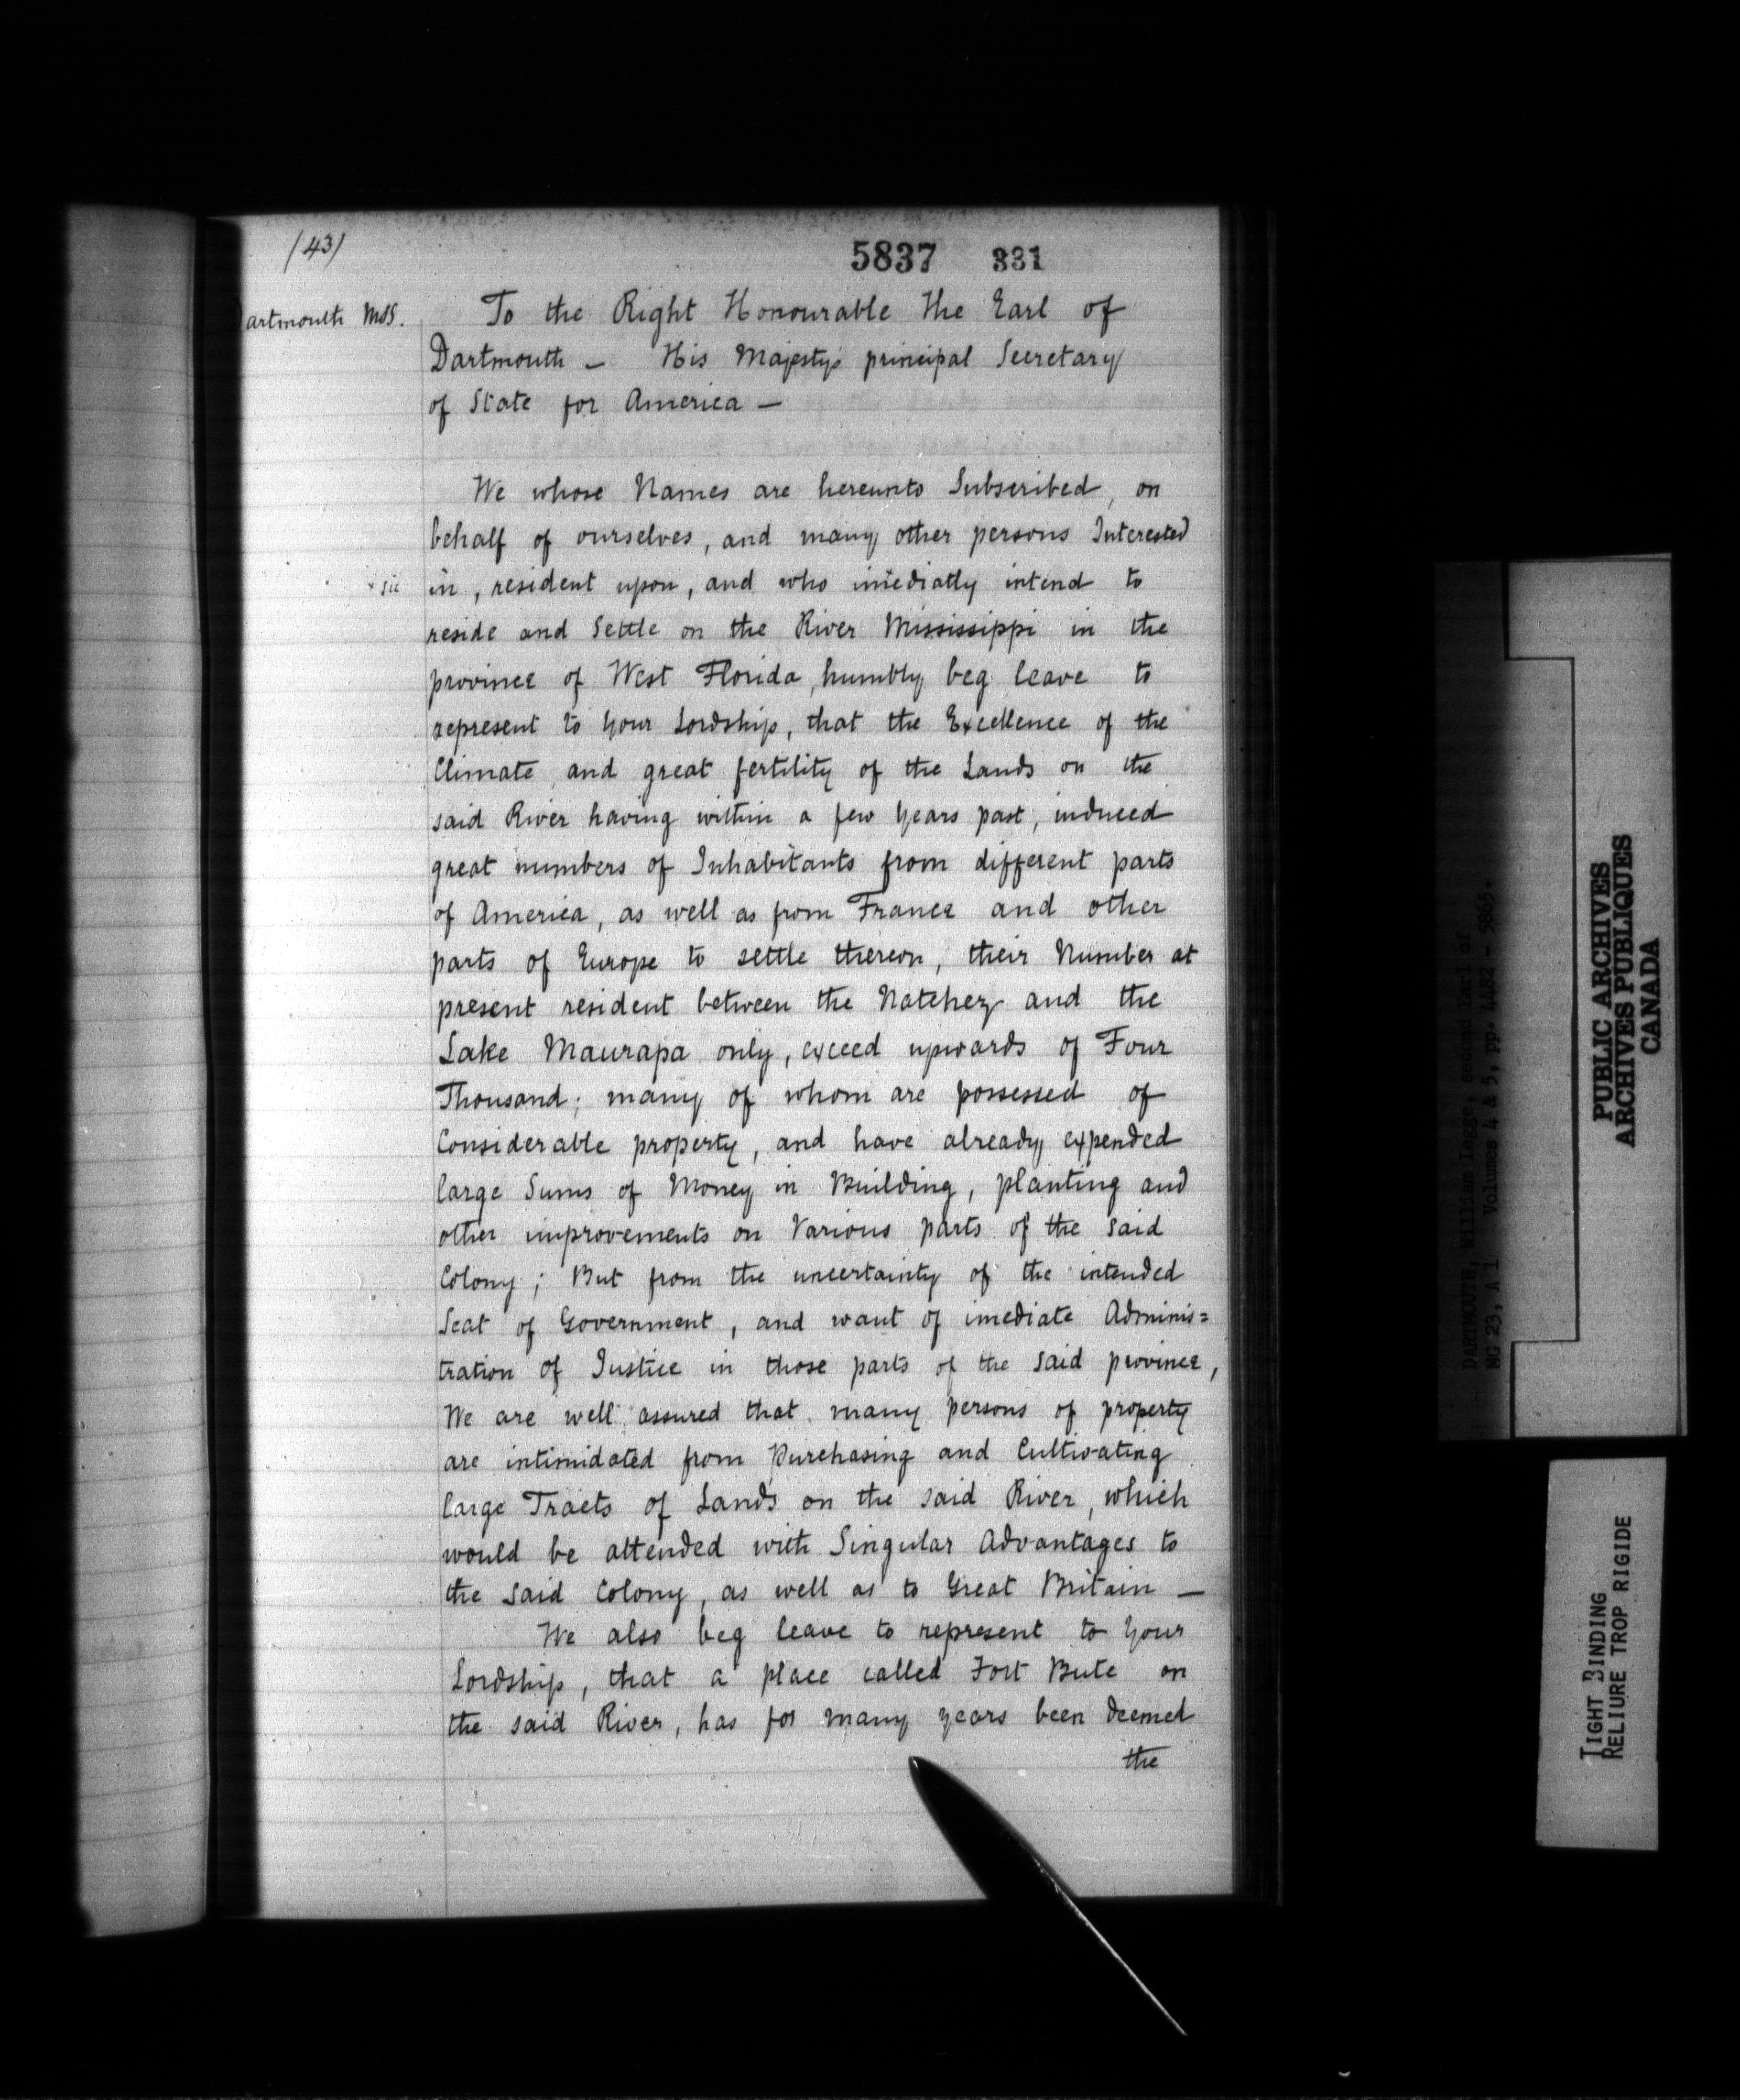 (43)
5837 331
Dartmouth MSS.
To the Right Honourable The Earl of
Dartmouth — His Majestys principal Secretary
of State for America —
We whose Names are hereunto Subscribed, on
behalf of ourselves, and many other persons Interested
sic
in, resident upon, and who imediatly intend to
reside and Settle on the River Mississippi in the
province of West Florida, humbly beg leave to
represent to Your Lordship, that the Excellence of the
Climate, and great fertility of the Lands on the
said River having within a few Years past, induced
great numbers of Inhabitants from different parts
of America, as well as from France and other
parts of Europe to settle thereon, their Number at
present resident between the Natchez and the
Lake Maurapa only, exceed upwards of Four
Thousand; many of whom are possessed of
Considerable property, and have already expended
large Sums of Money in Building, planting and
other improvements on Various parts of the said
Colony; But from the uncertainty of the intended
Seat of Government, and want of imediate Adminis=
tration of Justice in those parts of the said province,
We are well assured that many persons of property
are intimidated from Purchasing and Cultivating
large Tracts of Lands on the said River, which
would be attended with Singular Advantages to
the said Colony, as well as to Great Britain —
We also beg leave to represent to Your
Lordship, that a place called Fort Bute on
the said River, has for many years been deemed
the
DARTMOUTH, William Legge, second Earl of
MG 23, A 1 Volumes 4 & 5, pp. 4482 - 5865.
PUBLIC ARCHIVES
ARCHIVES PUBLIQUES
CANADA
TIGHT BINDING
RELIURE TROP RIGIDE